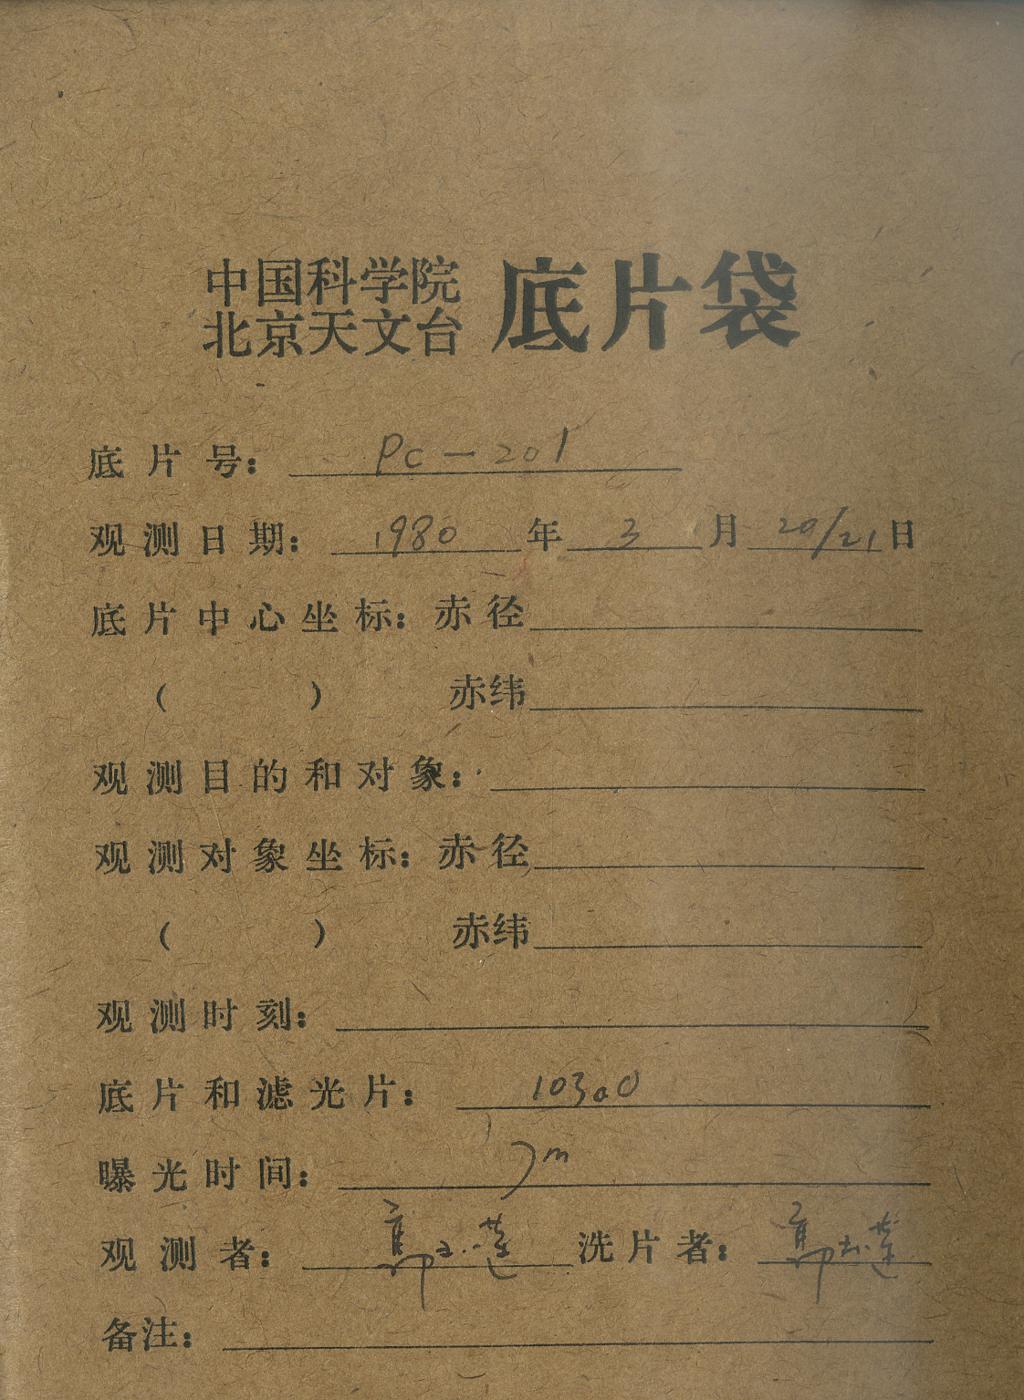 中国科学院
北京天文台 底片袋
底片号： Pc-201
观测日期： 1980 年 3 月 20/21 日
底片中心坐标：赤径
（ ） 赤纬
观测目的和对象：
观测对象坐标：赤径
（ ） 赤纬
观测时刻：
底片和滤光片： 103aO
曝光时间： 7m
观测者： 郭玉莲 洗片者： 郭玉莲
备注：